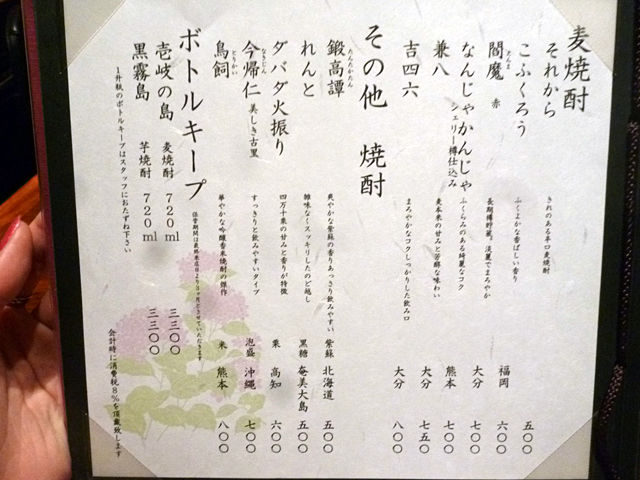 麦焼酎
それから きれのある辛口麦焼酎 五〇〇
こふくろう ふくよかな香ばしい香り 福岡 六〇〇
閻魔 赤 長期樽貯蔵 淡麗でまろやか 大分 七〇〇
えんま
なんじゃかんじゃ シェリー樽仕込み ふくらみのある綺麗なコク 熊本 七〇〇
兼八 麦本来の甘みと芳醇な味わい 大分 七五〇
吉四六 まろやかなコクしっかりした飲み口 大分 八〇〇
その他 焼酎
鍛高譚 爽やかな紫蘇の香りあっさり飲みやすい 紫蘇 北海道 五〇〇
たんたかたん
れんと 雑味なくスッキリしたのど越し 黒糖 奄美大島 五〇〇
ダバダ火振り 四万十栗の甘みと香りが特徴 栗 高知 六〇〇
今帰仁 美しき古里 すっきりと飲みやすいタイプ 泡盛 沖縄 七〇〇
なきじん
鳥飼 華やかな吟醸香米焼酎の傑作 米 熊本 八〇〇
とりかい
ボトルキープ 保管期間は最終来店日より3ヶ月とさせていただきます
壱岐の島 麦焼酎 720ml 三三〇〇
黒霧島 芋焼酎 720ml 三三〇〇
1升瓶のボトルキープはスタッフにおたずね下さい
会計時に消費税8%を頂戴致します